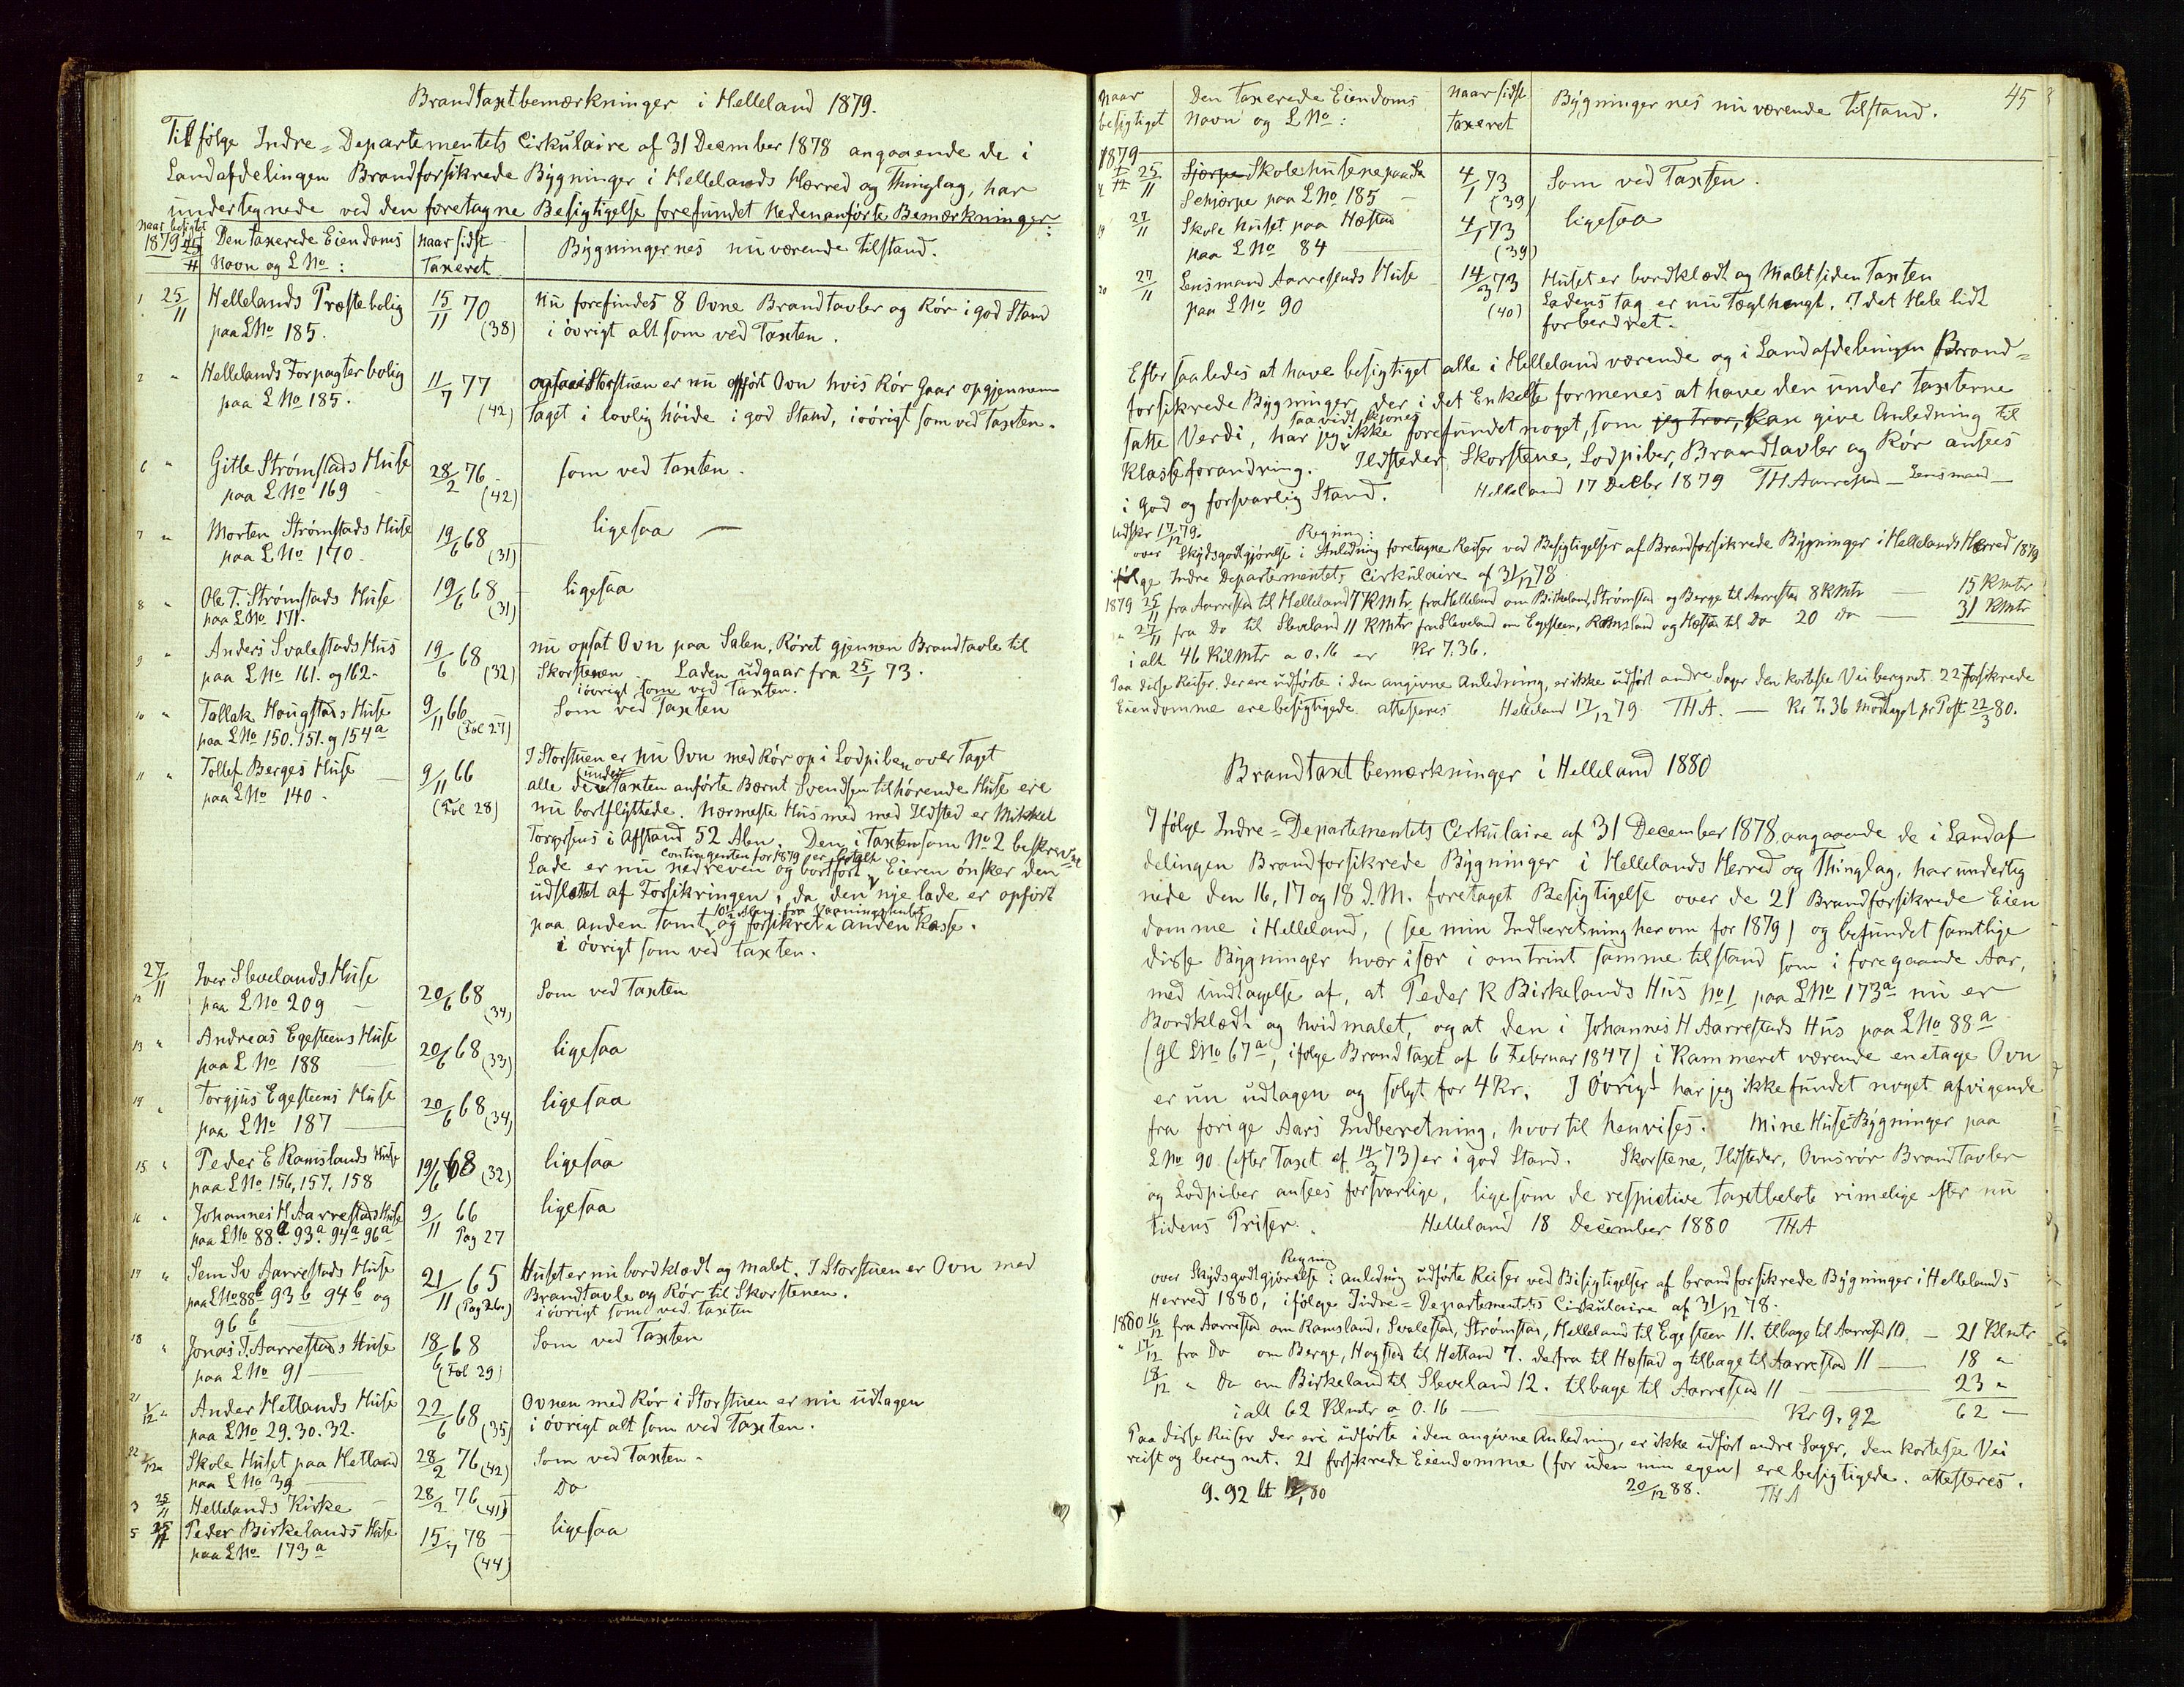 Brandtaxtbemærkninger i Helleland 1879.
Til følge Indre-Departementets Cirkulaire af 31 December 1878 angaaende de i
Landafdelingen Brandforsikrede Bygninger i Hellelands Herred og Thinglag, har
undertegnede ved den foretagne Besigtigelse forefundet Nedenanførte Bemærkninger:
Naar besigtet 1879 | Den taxerede Eiendoms Navn og L No: | Naar sidst Taxeret | Bygningernes nuværende Tilstand.
1 25/11 Hellelands Præstebolig 15/11 70 Nu forefindes 8 Ovne Brandtavler og Rör i god Stand
paa L No 185. (38) i övrigt alt som ved Taxten.
2 " Hellelands Forpagterbolig 11/7 77 ogsaa i Storstuen er nu opført Ovn hvis Rör Gaar op gjennem
paa L No 185. (42) Taget i lovlig høide i god Stand, i övrigt som ved Taxten.
6 " Gitle Strømstads Huse 28/2 76 som ved Taxten.
paa L No 169 (42)
7 " Morten Strømstads Huse 19/6 68 ligesaa
paa L No 170 (31)
8 " Ole T. Strømstads Huse 19/6 68 ligesaa
paa L No 171. (31)
9 " Anders Svalestads Hus 19/6 68 nu opsat Ovn paa Salen, Röret gjennem Brandtavle til
paa L No 161. og 162. (32) Skorstenen. Laden udgaar fra 25/1 73.
i övrigt som ved Taxten.
10 " Tollak Hougstads Huse 9/11 66 Som ved Taxten
paa L No 150. 151. og 154a (Fol 27)
11 " Tollef Berges Huse 9/11 66 I Storstuen er nu Ovn med Rör op i Lodpiben over Taget
paa L No 140. (Fol 28) alle under Taxten anförte Bernt Svendsen tilhörende Huse ere
nu bortflyttede. Nærmeste Hus med med Ildsted er Mikkel
Torgersens i Afstand 52 Alen. Den i Taxten som No 2 beskrevne
Lade er nu nedreven og bortført, Contingenten for 1879 er betalt Eieren ønsker den
udslettet af Forsikringen, da den nye lade er opført
paa anden Tomt 10½ Alen fra Vaaningshuset og forsikret i anden Kasse.
i övrigt som ved Taxten.
12 27/11 Iver Slevelands Huse 20/6 68 Som ved Taxten
paa L No 209 (34)
13 " Andreas Egesteens Huse 20/6 68 ligesaa
paa L No 188 (33)
14 " Torgjus Egesteens Huse 20/6 68 ligesaa
paa L No 187 (34)
15 " Peder E Ramslands Huse 19/6 68 ligesaa
paa L No 156, 157, 158 (32)
16 " Johannes H Aarrestads Huse 9/11 66 ligesaa
paa L No 88a. 93a. 94a 96a Pag 27
17 " Sem Sv Aarrestads Huse 21/11 65 Huset er nu bordklædt og malet. I Storstuen er Ovn med
paa L No 88b 93b 94b og (Pag 26.) Brandtavle og Rör til Skorstenen.
96b i övrigt som ved Taxten
18 " Jonas T. Aarrestads Huse 18/6 68 Som ved Taxten
paa L No 91 (Fol 29)
21 1/12 " Ander Hetlands Huse 22/6 68 Ovnen med Rör i Storstuen er nu udtagen
paa L No 29. 30. 32. (35) i övrigt alt som ved Taxten.
22 1/12 Skole Huset paa Hetland 28/2 76 (42) Som ved Taxten.
paa L No 39
3 25/11 Hellelands Kirke 28/2 76 (41) Do
5 25/11 Peder Birkelands Huse 15/7 78 ligesaa
paa L No 173a (44)
45
Naar besigtiget | Den Taxerede Eiendoms Navn og L No: | Naar sidst taxeret | Bygningernes nuværende Tilstand.
1879
4 25/11 Skolehusene paa
Schjørpe paa L No 185 4/1 73 (39) Som ved Taxten.
19 27/11 Skole Huset paa Hæstad 4/1 73 ligesaa
paa L No 84 (39)
20 27/11 Lensmand Aarrestads Huse 14/3 73 Huset er bordklædt og Malet siden Taxten
paa L No 90 (40) Ladens tag er nu Teglhængt. I det Hele lidt
forbedret.
Efter saaledes at have besigtiget alle i Helleland værende og i Landafdelingen Brand-
forsikrede Bygninger, der i det Enkelte formenes at have den under Taxterne
satte Verdi, har jeg saavidt skjönnes ikke forefundet noget, som jeg tror, kan give Anledning til
Klasseforandring. Ildsteder, Skorstene, Lodpiber, Brandtavler og Rör ansees
i God og forsvarlig Stand. Helleland 17 Decbr 1879 TH Aarrestad - Lensmand -
Udskr 17/12 79. Regning:
over Skydsgodtgjörelse i Anledning foretagne Reiser ved Besigtigelser af Brandforsikrede Bygninger i Hellelands Herred 1879
ifølge Indre Departementets Cirkulaire af 31/12 78.
1879 25/11 fra Aarrestad til Helleland 7 Kmtr. fra Helleland om Birkeland, Strømstad og Berge til Aarrestad 8 Kmtr — 15 Kmtr
" 27/11 fra Do til Sleveland 11 Kmtr fra Sleveland om Egesteen, Ramsland og Hæstad til Do 20 Do — 31 Kmtr
i alt 46 Kilmtr a 0.16 er Kr 7.36.
Paa disse Reiser, der ere udførte i den angivne Anledning, er ikke udført andre Sager den korteste Vei beregnet. 22 forsikrede
Eiendomme ere besigtigede attesteres Helleland 17/12 79 THA. — Kr 7.36 modtaget pr Post 22/3 80.
Brandtaxtbemærkninger i Helleland 1880
I følge Indre-Departementets Cirkulaire af 31 December 1878 angaaende de i Landaf
delingen Brandforsikrede Bygninger i Hellelands Herred og Thinglag, har underteg
nede den 16, 17 og 18 d.M. foretaget Besigtigelse over de 21 Brandforsikrede Eien
domme i Helleland, (see min Indberetning herom for 1879) og befundet samtlige
disse Bygninger hvær især i omtrint samme tilstand som i foregaande Aar,
med undtagelse af, at Peder R Birkelands Hus No 1 paa L No 173a nu er
Bordklædt og hvidmalet, og at den i Johannes H Aarrestads Hus paa L No 88a
(gl L No 67a, ifølge Brandtaxt af 6 Februar 1847) i Kammeret værende enetage Ovn
er nu udtagen og solgt for 4 Kr. I Övrigt har jeg ikke fundet noget afvigende
fra forige Aars Indberetning, hvortil henvises. Mine Huse Bygninger paa
L No 90 (efter Taxt af 14/3 73) er i god Stand. Skorstene, Ildsteder, Ovnsrör Brandtavler
og Lodpiber ansees forsvarlige, ligesom de respictive Taxtbeløb rimelige efter nu
tidens Priser. Helleland 18 December 1880 THA
Regning
over Skydsgodtgjörelse i anledning udførte Reiser ved Bisigtigelser af brandforsikrede Bygninger i Hellelands
Herred 1880, ifølge Indre-Departementets Cirkulaire af 31/12 78.
1880 16/12 fra Aarrestad om Ramsland, Svalestad, Strømstad, Helleland til Egesteen 11. tilbage til Aarrestad 10. — 21 Klmtr
" 17/12 fra Do om Berge, Hogstad til Hetland 7. derfra til Hæstad og tilbage til Aarrestad 11 — 18 "
18/12 " Do om Birkeland til Sleveland 12. tilbage til Aarrestad 11 — 23 "
i alt 62 Klmtr a 0.16 — Kr 9,92 62 —
Paa disse Reiser der ere udførte i den angivne Anledning, er ikke udført andre Sager, den korteste Vei
reist og beregnet. 21 forsikrede Eiendomme (for uden min egen) ere besigtigede. attesteres.
9.92 80 20/12 88. THA